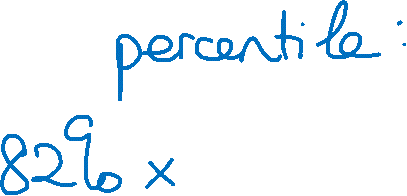 percentile:
82% x